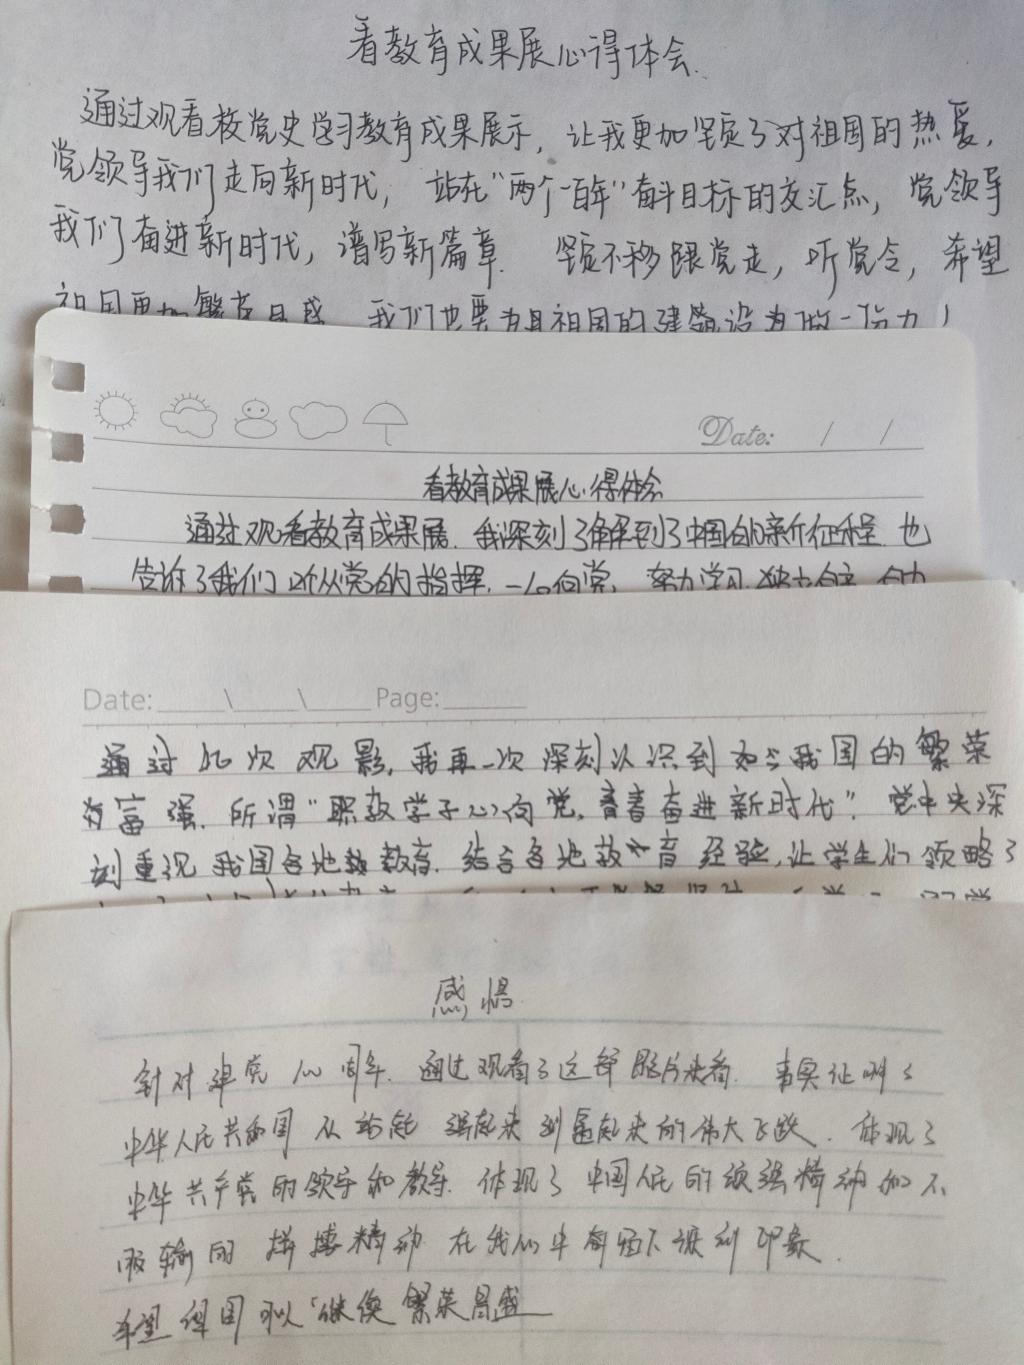 看教育成果展心得体会.
通过观看校党史学习教育成果展示，让我更加坚定了对祖国的热爱，
党领导我们走向新时代，站在“两个一百年”奋斗目标的交汇点，党领导
我们奋进新时代，谱写新篇章. 坚定不移跟党走，听党令，希望
祖国更加繁荣昌盛 我们也要为祖国的建设做一份力！
Date: / /
看教育成果展心得体会
通过观看教育成果展. 我深刻了解到了中国的新征程. 也
告诉了我们听从党的指挥. 一心向党, 努力学习 独立自主
Date:____\____\____Page:____
通过此次观影, 我再一次深刻认识到如今我国的繁荣
富强. 所谓“职教学子心向党, 青春奋进新时代”. 党中央深
刻重视我国各地教育. 结合各地教育经验, 让学生们领略了
感悟
针对建党100周年. 通过观看了这部影片来看. 事实证明了
中华人民共和国从站起 强起来到富起来的伟大飞跃. 体现了
中华共产党的领导和教导. 体现了中国人民的顽强精神和不
服输的拼搏精神 在我心中留下深刻印象.
希望祖国可以继续繁荣昌盛